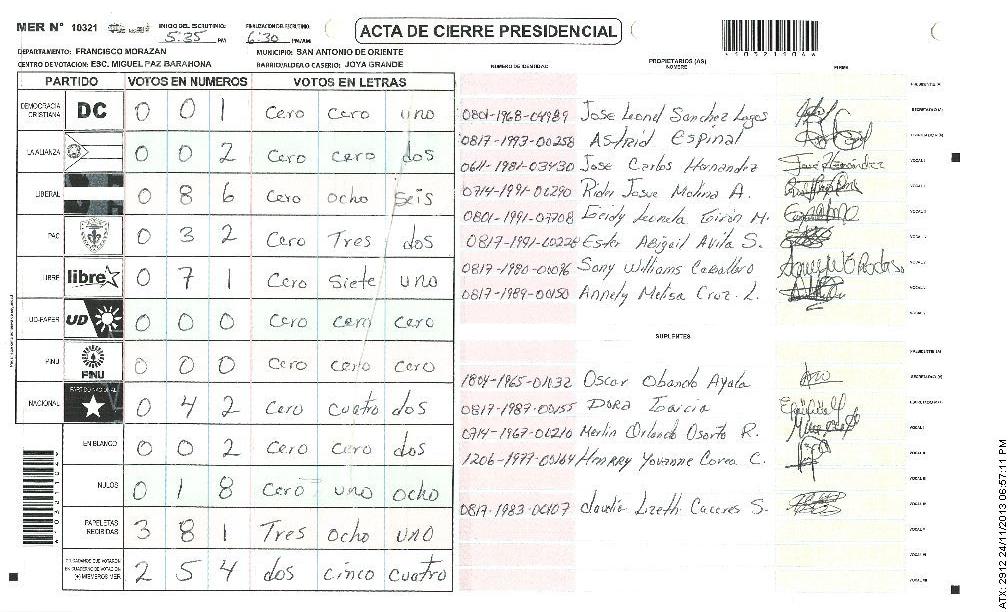 MER N° 10321 INICIO DEL ESCRUTINIO: 5:35 PM FINALIZACION DEL ESCRUTINIO: 6:30 PM/AM ACTA DE CIERRE PRESIDENCIAL
DEPARTAMENTO: FRANCISCO MORAZAN MUNICIPIO: SAN ANTONIO DE ORIENTE
CENTRO DE VOTACION: ESC. MIGUEL PAZ BARAHONA BARRIO/ALDEA O CASERIO: JOYA GRANDE
PARTIDO VOTOS EN NUMEROS VOTOS EN LETRAS
DEMOCRACIA CRISTIANA DC 0 0 1 Cero Cero uno
LA ALIANZA 0 0 2 Cero Cero dos
LIBERAL 0 8 6 Cero ocho seis
PAC 0 3 2 Cero Tres dos
LIBRE libre 0 7 1 Cero Siete uno
UD-FAPER UD 0 0 0 Cero cero cero
PINU PINU 0 0 0 Cero cero cero
NACIONAL PARTIDO NACIONAL 0 4 2 Cero cuatro dos
EN BLANCO 0 0 2 Cero Cero dos
NULOS 0 1 8 Cero uno ocho
PAPELETAS RECIBIDAS 3 8 1 Tres ocho uno
CIUDADANOS QUE VOTARON EN CUADERNO DE VOTACION (+) MIEMBROS MER 2 5 4 dos cinco cuatro
NUMERO DE IDENTIDAD PROPIETARIOS (AS) NOMBRE FIRMA
PRESIDENTE (A)
0801-1968-04989 Jose Leonel Sanchez Lagos SECRETARIO (A)
0817-1993-00258 Astrid Espinal
0611-1981-03430 Jose Carlos Hernandez VOCAL I
0714-1991-00290 Josue Molina A.
0801-1991-07708
0817-1991-00228 Ester Abigail Avila S.
0817-1980-00096 Sony Williams Caballero
0817-1989-00150 Annely Melisa Cruz. L.
SUPLENTES
PRESIDENTE (A)
1804-1965-01032 Oscar Obando Ayala SECRETARIO (A)
0817-1987-00155 Dora
0714-1967-00210 Merlin Orlando Osorto R. VOCAL I
1206-1977-00164 Henrry Yovanne Corea C. VOCAL II
0817-1983-00107 claudia Lizeth Caceres S.
ATX: 2912 24/11/2013 06:57:11 PM